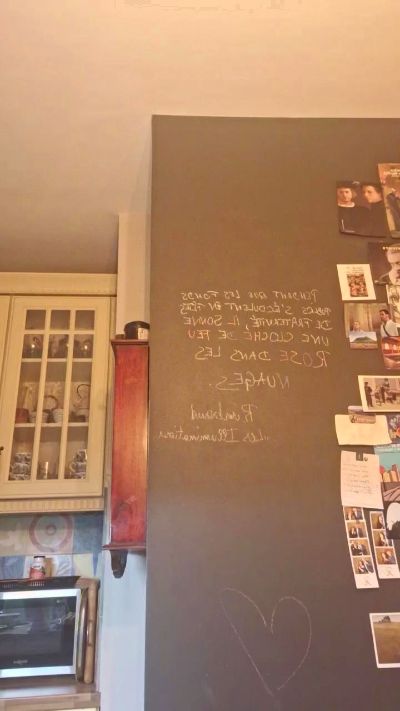 PENDANT QUE LES FONDS
PUBLICS S'ÉCOULENT EN FÊTES
DE FRATERNITÉ, IL SONNE
UNE CLOCHE DE FEU
ROSE DANS LES
NUAGES.
Rimbaud
"Les Illuminations